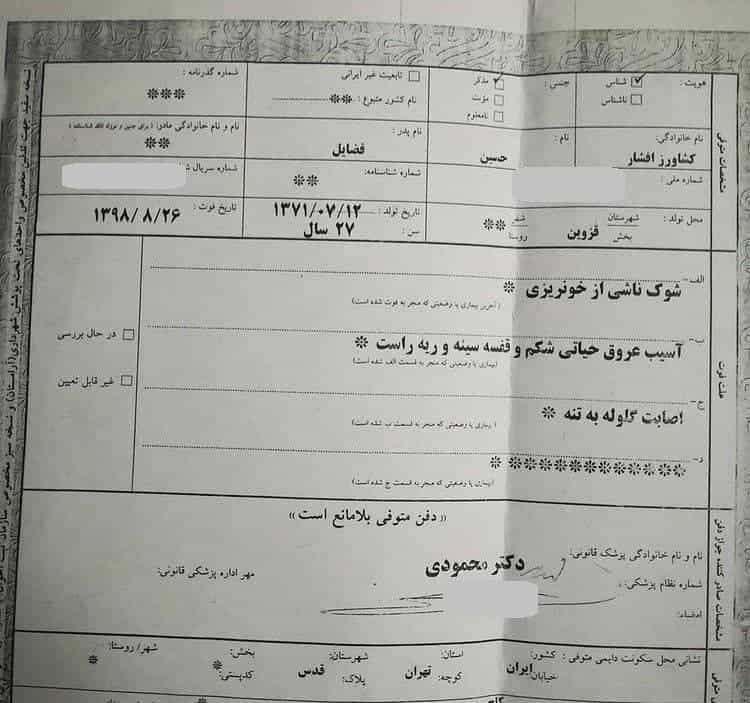 هویت: شناس ناشناس
جنسی: مذکر مونث نامعلوم
تابعیت غیر ایرانی
نام کشور متبوع: **
شماره گذرنامه: ***
نام خانوادگی: کشاورز افشار
نام: حسین
نام پدر: فضایل
نام و نام خانوادگی مادر:
**
شماره ملی:
شماره شناسنامه: **
شماره سریال
محل تولد: شهرستان بخش قزوین شهر روستا **
تاریخ تولد: ۱۳۷۱/۰۷/۱۲
سن: ۲۷ سال
تاریخ فوت: ۱۳۹۸/۸/۲۶
مشخصات متوفی
الف-
شوک ناشی از خونریزی *
(آخرین بیماری یا وضعیتی که منجر به فوت شده است)
ب-
آسیب عروق حیاتی شکم و قفسه سینه و ریه راست *
(بیماری یا وضعیتی که منجر به قسمت الف شده است)
ج-
اصابت گلوله به تنه *
(بیماری یا وضعیتی که منجر به قسمت ب شده است)
د-
************* *
(بیماری یا وضعیتی که منجر به قسمت ج شده است)
در حال بررسی
غیر قابل تعیین
علت فوت
«دفن متوفی بلامانع است»
نام و نام خانوادگی پزشک قانونی: دکتر محمودی
شماره نظام پزشکی:
امضاء:
مهر اداره پزشکی قانونی:
مشخصات صادر کننده جواز دفن
نشانی محل سکونت دایمی متوفی: کشور: ایران استان: تهران شهرستان: قدس بخش: * شهر/ روستا: *
خیابان: کوچه: پلاک: کدپستی: